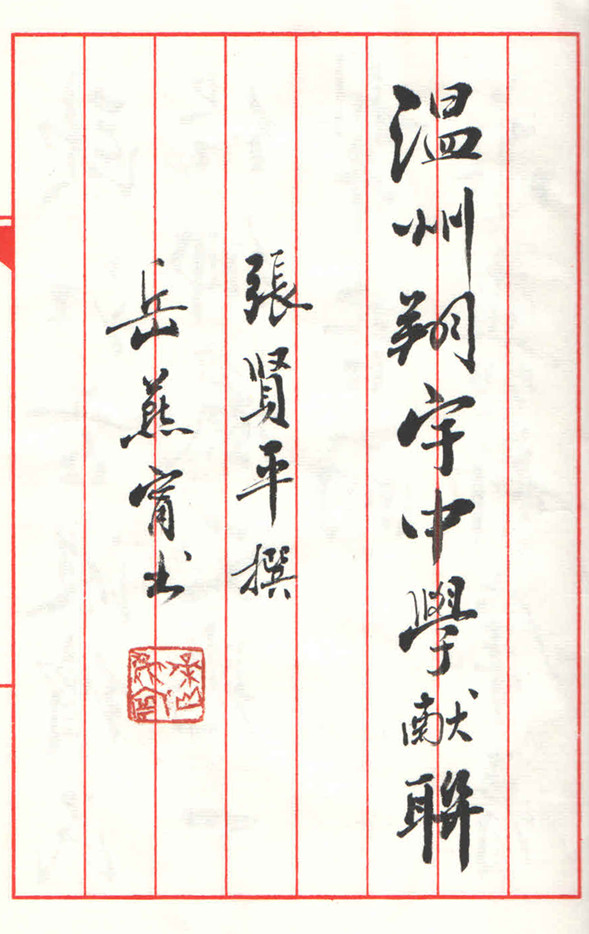 温州翔宇中學献聯
張贤平撰
岳燕甯书